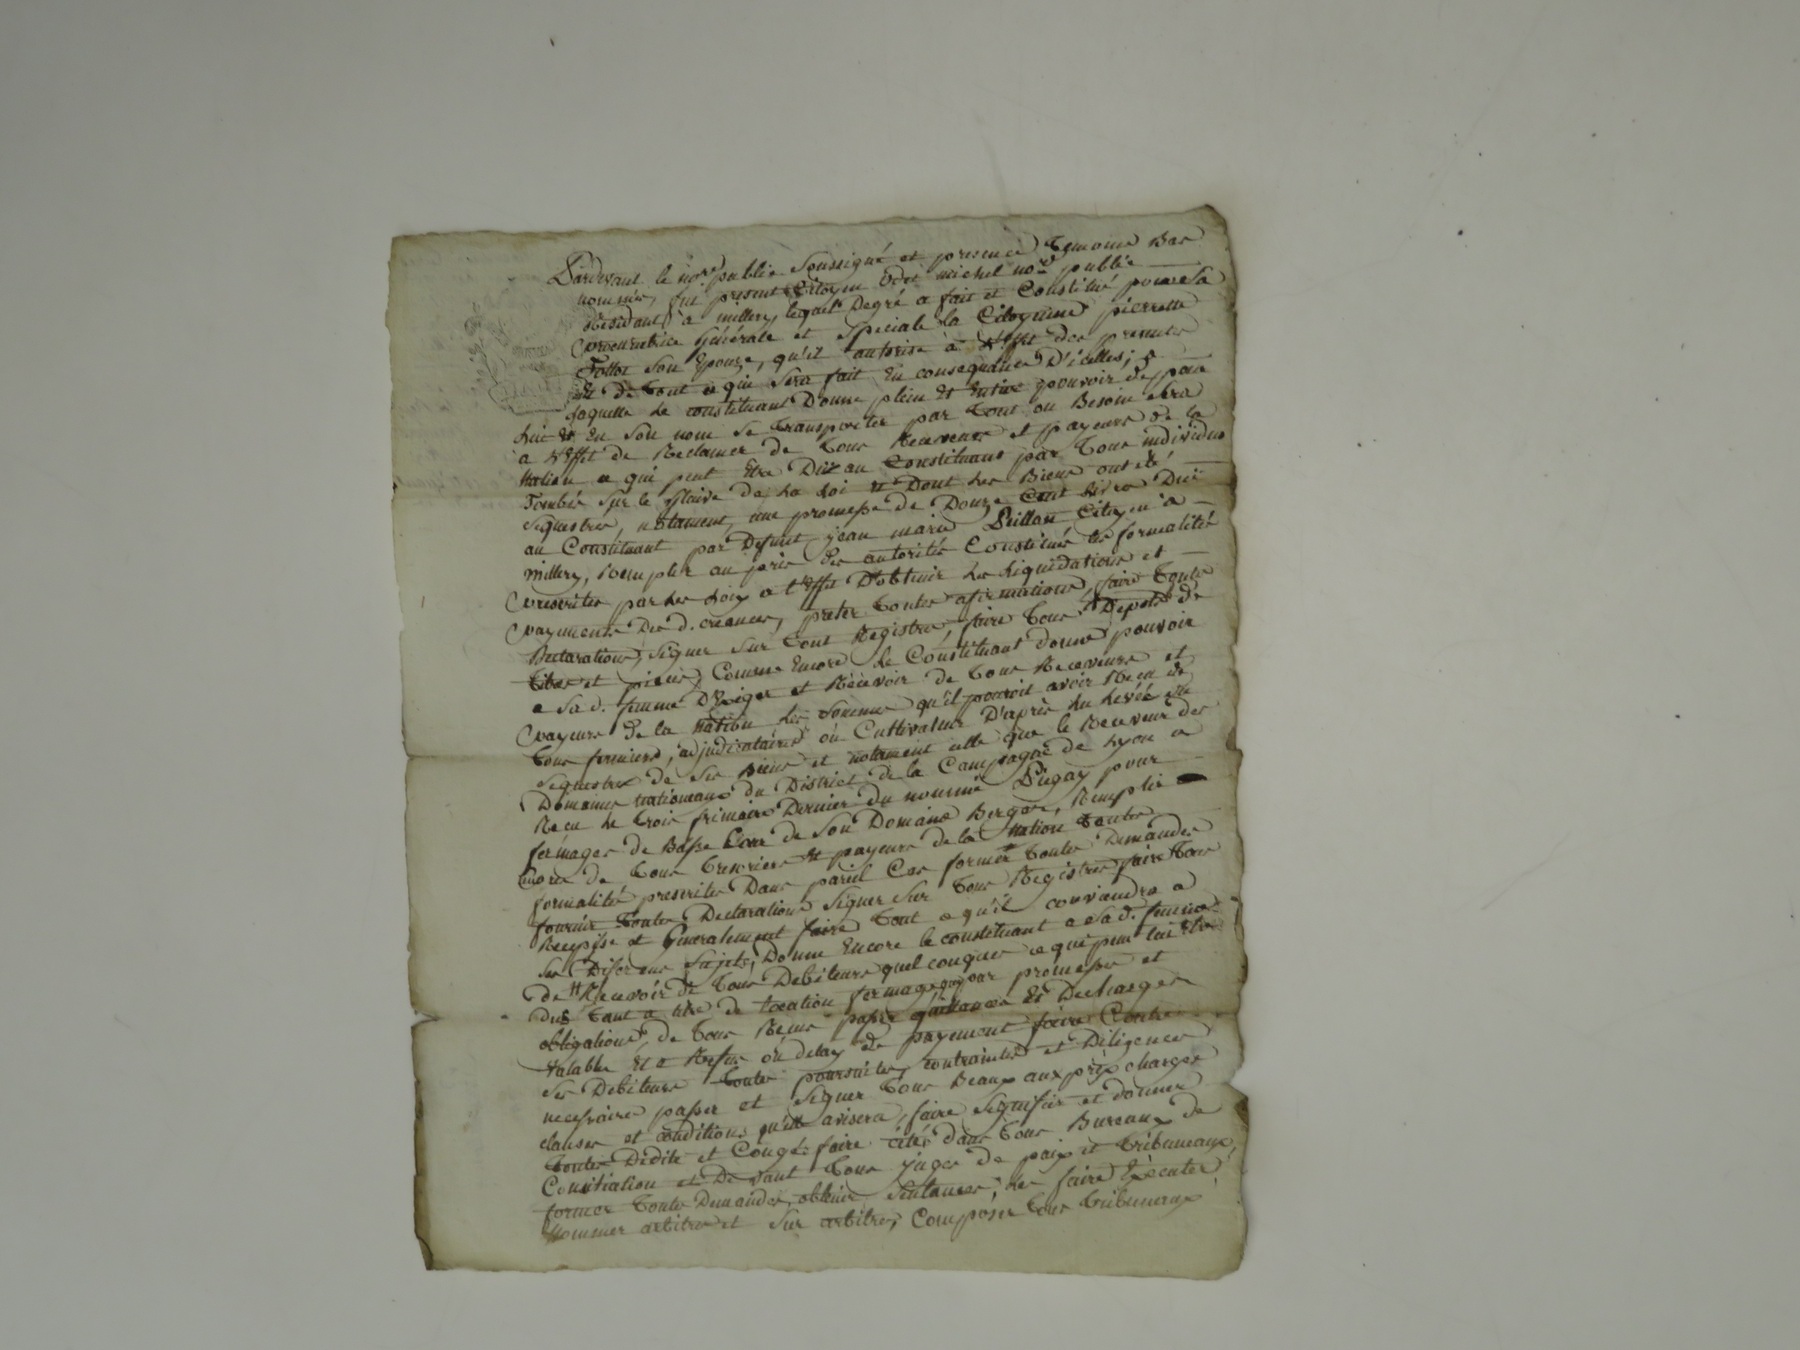 Pardevant le no.re public Soussigné et presence Temoins Bas
nommés, fut present Citoyen michel no.re public
Résidant à millery, lequel Degré a fait et Constitué pour Sa
procuratrice Générale et Speciale la Citoyenne pierrette
Son Epouze, qu'il autorise à l'Effet des presentes
Et de Tout ce qui Sera fait En consequance D'icelles, a
laquelle Le constituant Donne plein Et Entier pouvoir de pour
Lui Et En Son nom Se Transporter par Tout ou Besoin Sera
a l'Effet de Réclamer de Tous Receveurs et payeurs de la
Nation ce qui peut Etre Du au Constituant par Tous individus
Tombés Sur le Glaive de La Loi Et Dont Les Biens ont été
Sequestrés, notament, une promesse de Douze Cent Livres Düe
au Constituant par Defunt jean marie Citoyen à
millery, Remplir au près des autorités Constitués les formalités
prescrites par Les Loix a l'Effet D'obtenir Les Liquidations et
payements Des d. créances, préter Toutes afirmations, faire Toutes
Declarations, Signer Sur Tout Registres, faire Tous Depots de
Titres et pièces, Comme Encore Le Constituant donne pouvoir
a Sa d. femme D'Exiger et Récevoir de Tous Receveurs et
payeurs de la Nation Les Sommes qu'il pouroit avoir Recu de
Tous fermiers, adjudicataires ou Cultivateur D'après La Levée du
Sequestre de Ses Biens et notament celle que le Receveur des
Domaines Nationaux du District de la Campagne de Lyon a
Recu Le Trois frimaire Dernier du nommé pour
fermages de Basse Cour de Son Domaine Berger, Remplir
Encore de Tous Tresoriers Et payeurs de la Nation Toutes
formalités prescrites Dans pareil Cas former Toutes Demandes
fournir Toutes Declarations Signer Sur Tous Registres faire Tous
Recepisse et Généralement faire Tout ce qu'il conviendra a
Ses Disferens Sujets, Donne Encore le constituant a Sa d. femme
de Recevoir de Tous Debiteurs quel conques ce qui peut lui Etre
dus Tant a titre de Location fermages que par promesses et
obligations, de Tous Recus passer quitances Et Decharges
Valables Et a Refus ou delay de payement faire Contre
Ses Debiteurs Toutes poursuites, contraintes et Diligences
necessaires passer et Signer Tous Beaux aux prix charges
clauses et conditions qu'elle avisera, faire Signifier et donner
Toutes Dédite et Congés faire citér dans Tous Bureaux de
Consiliation et Devant Tous juges de paix et Tribuneaux,
former Toutes Demandes, obtenir Sentances, Les faire Exécuter
Nommer arbitres et Sur arbitres, Composer Tous Tribuneaux